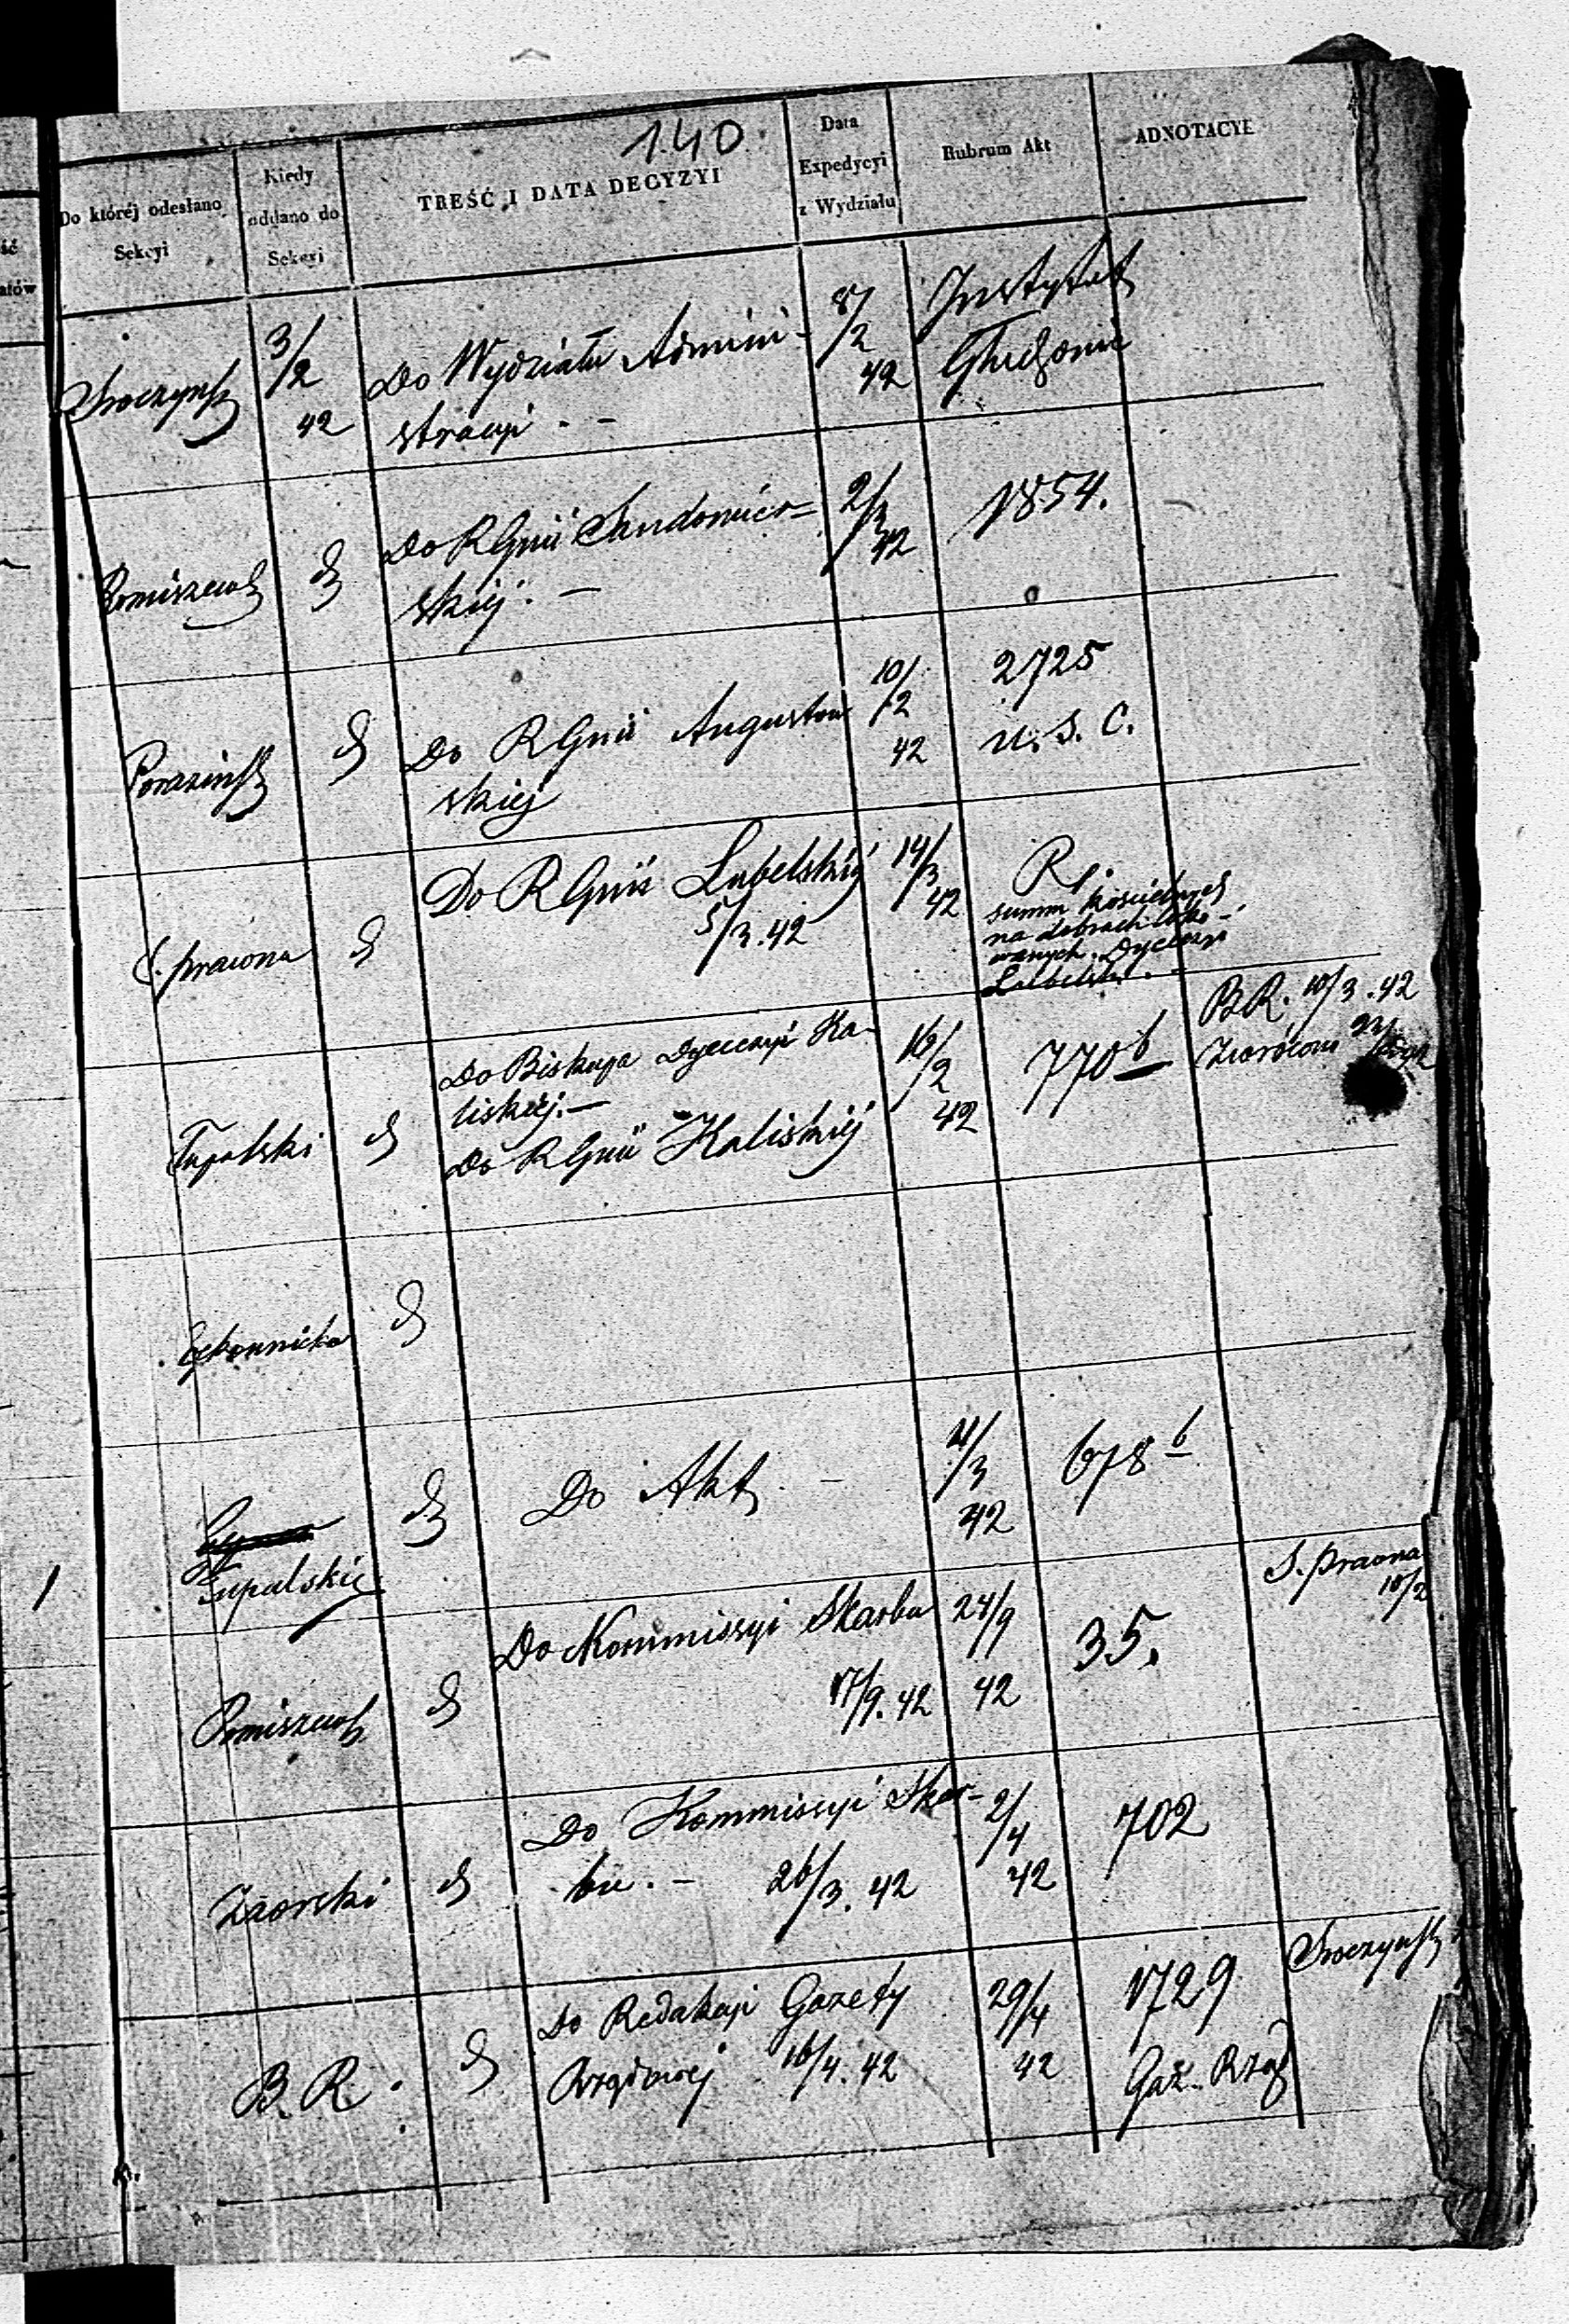 140.
Do któréj odesłano Sekcyi
Kiedy oddano do Sekcyi
TREŚĆ I DATA DECYZYI
Data Expedycyi z Wydziału
Rubrum Akt
ADNOTACYE
Sroczyńsk
3/2 42
Do Wydziału Admini-
stracyi . –
8/2 42
Instytut
Głuchoni
Pomiszewsk
Do RGnii Sandomier=
skiéj. –
2/3 42
1854.
Porazińsk
Do RGnii Augustow
skiej
10/2 42
2725
u. S. C.
S. prawona
Do RGnii Lubelskiéj
5/3. 42
14/3 42
summ kościelnych
na dobrach loko-
wanych. Dyecezyi
Lubelsk.
Tupalski
Do Biskupa Dyecezyi Ka-
liskiéj. –
Do RGnii Kaliskiéj
16/2 42
770 b
BR. 10/3. 42
Zwrócono
Tupalskie
Do Akt. –
21/3 42
678 b
Pomiszewsk
Do Kommissyi Skarbu
17/9. 42
24/9 42
35.
S. prawna
10/2
Zaorski
Do Kommissyi Skar-
bu. – 26/3. 42
2/4 42
702
B. R.
Do Redakcyi Gazety
Rządowej 16/4. 42
29/4 42
1729
Gaz. Rząd
Sroczyńsk